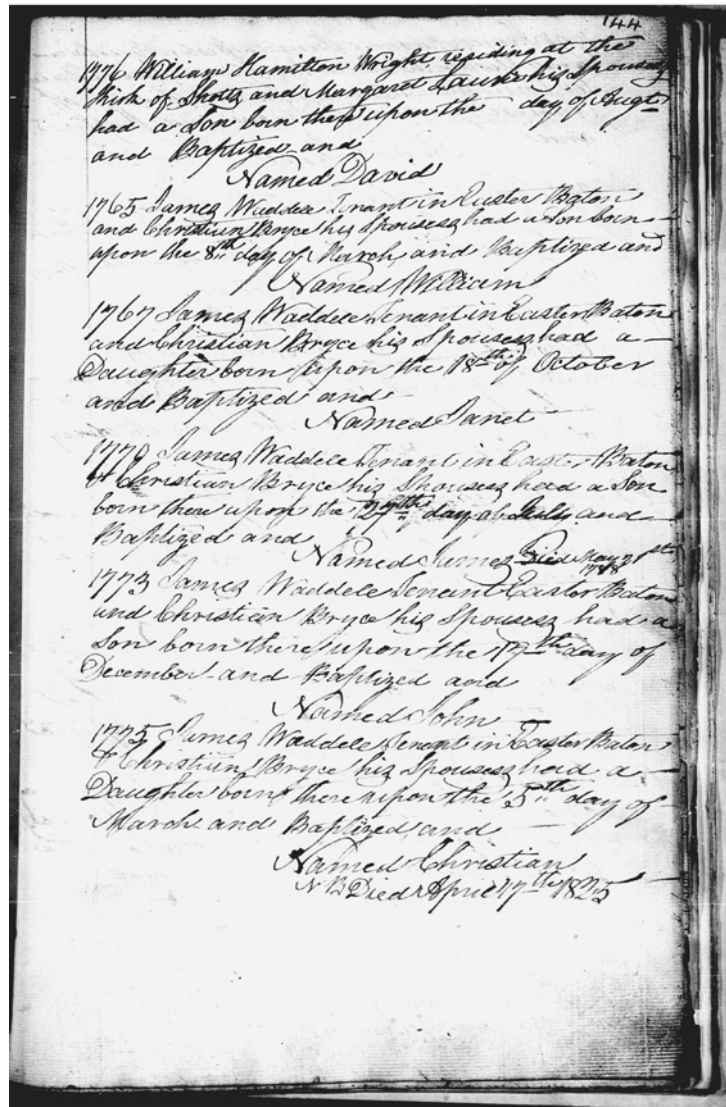 144
1776 William Hamilton Wright, residing at the
Kirk of Shotts and Margaret his Spousess
had a Son born there upon the day of Augt
and Baptized and
Named David
1765 James Waddele Tenant in Easter Baton
and Christian Bryce his Spousess had a Son born
upon the 8th day of March and Baptized and
Named William
1767 James Waddele Tenant in Easter Baton
and Christian Bryce his Spousess had a
Daughter born upon the 18th of October
and Baptized and
Named Janet
1770 James Waddele Tenant in Easter Baton
& Christian Bryce his Spousess had a Son
born there upon the day of July and
Baptized and
Named James Died May
1773 James Waddele Tenant Easter Baton
and Christian Bryce his Spousess had a
Son born there upon the 17th day of
December and Baptized and
Named John
1775 James Waddele Tenant in Easter Baton
& Christian Bryce his Spousess had a
Daughter born there upon the 5th day of
March and Baptized and
Named Christian
NB Died April 17th 1825